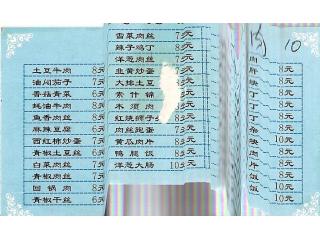 土豆牛肉 8元
油闷茄子 7元
香菇青菜 6元
蚝油牛肉 8元
鱼香肉丝 7元
麻辣豆腐 6元
西红柿炒蛋 7元
青椒土豆丝 6元
白菜肉丝 7元
青椒肉丝 7元
回锅肉 8元
青椒干丝 6元
雪菜肉丝 7元
辣子鸡丁 8元
洋葱肉丝 7元
韭黄炒蛋 7元
大排土豆
素什锦
木须肉
红烧狮子
肉丝跑蛋 8元
黄瓜肉片 8元
鸭腿饭 8元
洋葱大肠 10元
肉 10
肉
肝 8元
块 8元
丁 8元
丁 8元
丁 8元
杂 8元
块 10元
肉 8元
饭 8元
饭 10元